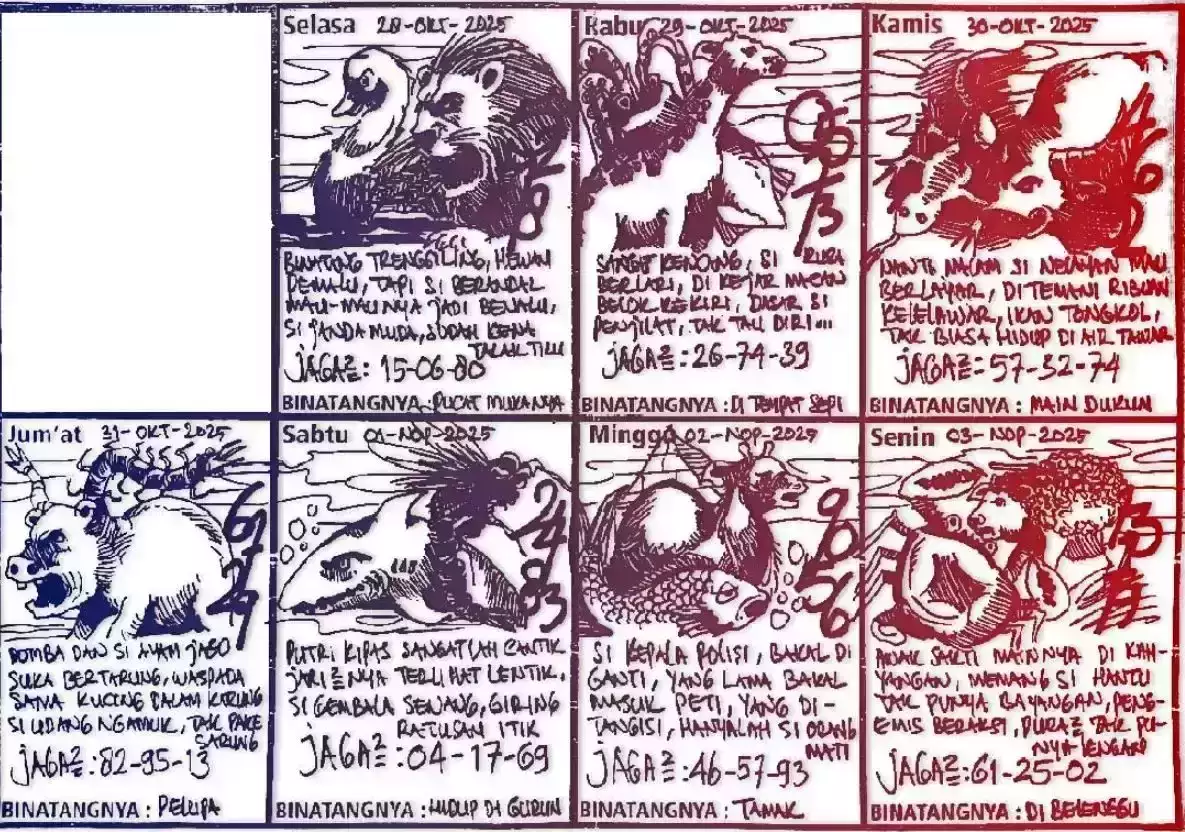 Selasa 28-OKT-2025
BINATANG TRENGGILING, HEWAN
PEMALU, TAPI SI BERANDAL
MAU-MAUNYA JADI BENALU,
SI JANDA MUDA, SUDAH KENA
JAGA2=: 15-06-80
BINATANGNYA : PUCAT MUKANYA
Rabu 29-OKT-2025
SANGAT KENCANG, SI RUSA
BERLARI, DI KEJAR MACAN
BELOK KEKIRI, DASAR SI
PENJILAT, TAK TAU DIRI...
JAGA2=: 26-74-39
BINATANGNYA : DI TEMPAT SEPI
Kamis 30-OKT-2025
NANTI MALAM SI NELAYAN MAU
BERLAYAR, DI TEMANI RIBUAN
KELELAWAR, IKAN TONGKOL,
TAK BIASA HIDUP DI AIR TAWAR
JAGA2=: 57-32-74
BINATANGNYA : MAIN DUKUN
Jum'at 31-OKT-2025
DOMBA DAN SI AYAM JAGO
SUKA BERTARUNG, WASPADA
SAMA KUCING DALAM KARUNG
SI UDANG NGAMUK, TAK PAKE
SARUNG
JAGA2=: 82-95-13
BINATANGNYA : PELUPA
Sabtu 01-NOP-2025
PUTRI KIPAS SANGATLAH CANTIK
JARI2=NYA TERLIHAT LENTIK,
SI GEMBALA SENANG, GIRING
RATUSAN ITIK
JAGA2=: 04-17-69
BINATANGNYA : HIDUP DI GURUN
Minggu 02-NOP-2025
SI KEPALA POLISI, BAKAL DI
GANTI, YANG LAMA BAKAL
MASUK PETI, YANG DI-
TANGISI, HANYALAH SI ORANG
MATI
JAGA2=: 46-57-93
BINATANGNYA : TAMAK
Senin 03-NOP-2025
ANAK SAKTI MAINNYA DI KAH-
YANGAN, MENANG SI HANTU
TAK PUNYA BAYANGAN, PENG-
EMIS BERAKSI, PURA2 TAK PU-
NYA LENGAN
JAGA2=: 61-25-02
BINATANGNYA : DI BELENGGU